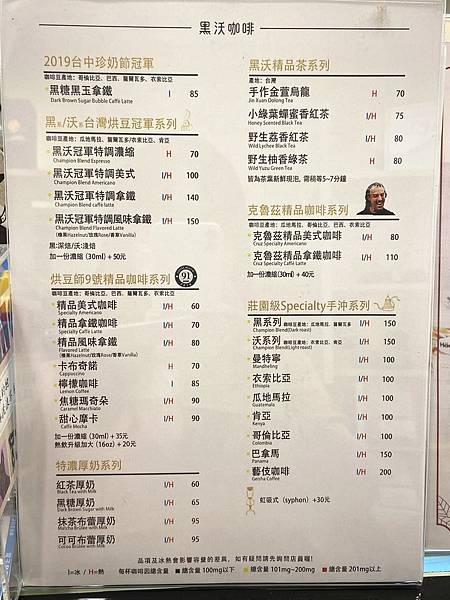 黑沃咖啡
2019台中珍奶節冠軍
咖啡豆產地：哥倫比亞、巴西、薩爾瓦多、衣索比亞
黑糖黑玉拿鐵 I 85
Dark Brown Sugar Bubble Caffè Latte
黑系/沃系台灣烘豆冠軍系列
咖啡豆產地：瓜地馬拉、薩爾瓦多/衣索比亞、肯亞
黑沃冠軍特調濃縮 H 70
Champion Blend Espresso
黑沃冠軍特調美式 I/H 100
Champion Blend Americano
黑沃冠軍特調拿鐵 I/H 140
Champion Blend caffe latte
黑沃冠軍特調風味拿鐵 I/H 150
Champion Blend Flavored Latte
(榛果Hazelnut/玫瑰Rose/香草Vanilla)
黑:深焙/沃:淺焙
加一份濃縮 (30ml) + 50元
烘豆師9號精品咖啡系列
91
咖啡豆產地：哥倫比亞、巴西、薩爾瓦多、衣索比亞
精品美式咖啡 I/H 60
Specialty Americano
精品拿鐵咖啡 I/H 70
Specialty Caffè Latte
精品風味拿鐵 I/H 80
Flavored Latte
(榛果Hazelnut/玫瑰Rose/香草Vanilla)
卡布奇諾 H 70
Cappuccino
檸檬咖啡 I 85
Lemon Coffee
焦糖瑪奇朵 I/H 90
Caramel Macchiato
甜心摩卡 I/H 90
Caffè Mocha
加一份濃縮 (30ml) + 35元
熱飲升級加大 (16oz) + 20元
特濃厚奶系列
紅茶厚奶 I/H 60
Black Tea with Milk
黑糖厚奶 I/H 65
Dark Brown Sugar with Milk
抹茶布蕾厚奶 I/H 95
Matcha Brulee with Milk
可可布蕾厚奶 I/H 95
Cocoa Brulee with Milk
黑沃精品茶系列
產地：台灣
手作金萱烏龍 H 70
Jin Xuan Oolong Tea
小綠葉蟬蜜香紅茶 I/H 75
Honey Scented Black Tea
野生荔香紅茶 H 80
Wild Lychee Black Tea
野生柚香綠茶 H 80
Wild Yuzu Green Tea
皆為茶葉新鮮現泡，需稍等5~7分鐘
克魯茲精品咖啡系列
咖啡豆產地：瓜地馬拉、哥倫比亞、衣索比亞
克魯茲精品美式咖啡 I/H 80
Cruz Specialty Americano
克魯茲精品拿鐵咖啡 I/H 110
Cruz Specialty Caffè Latte
加一份濃縮(30ml) + 40元
莊園級Specialty手沖系列
黑系列 咖啡豆產地：瓜地馬拉、薩爾瓦多 I/H 150
Champion Blend(Dark roast)
沃系列 咖啡豆產地：衣索比亞、肯亞 I/H 150
Champion Blend(Light roast)
曼特寧 I/H 100
Mandheling
衣索比亞 I/H 100
Ethiopia
瓜地馬拉 I/H 100
Guatemala
肯亞 I/H 100
Kenya
哥倫比亞 I/H 100
Colombia
巴拿馬 I/H 150
Panama
藝伎咖啡 I/H 200
Geisha Coffee
虹吸式（syphon）+30元
品項及冰熱會影響容量的差異，如有疑問請先詢問店員喔！
I=冰 / H=熱 每杯咖啡因總含量 ■ 總含量 100mg以下 ■ 總含量 101mg~200mg ■ 總含量 201mg以上